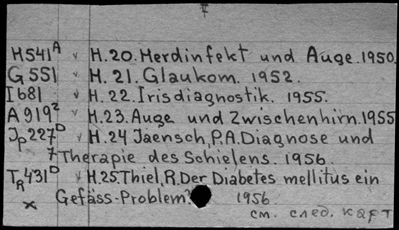 H541ᴬ v H.20. Herdinfekt und Auge. 1950.
G551 v H.21. Glaukom. 1952.
I681 v H.22. Irisdiagnostik. 1955.
A919² v H.23. Auge und Zwischenhirn. 1955
Jp227ᴰ v H.24 Jaensch, P.A. Diagnose und
7 Therapie des Schielens. 1956.
TR431ᴰ v H.25. Thiel, R. Der Diabetes mellitus ein
x Gefäss-Problem? 1956
см. след. карт